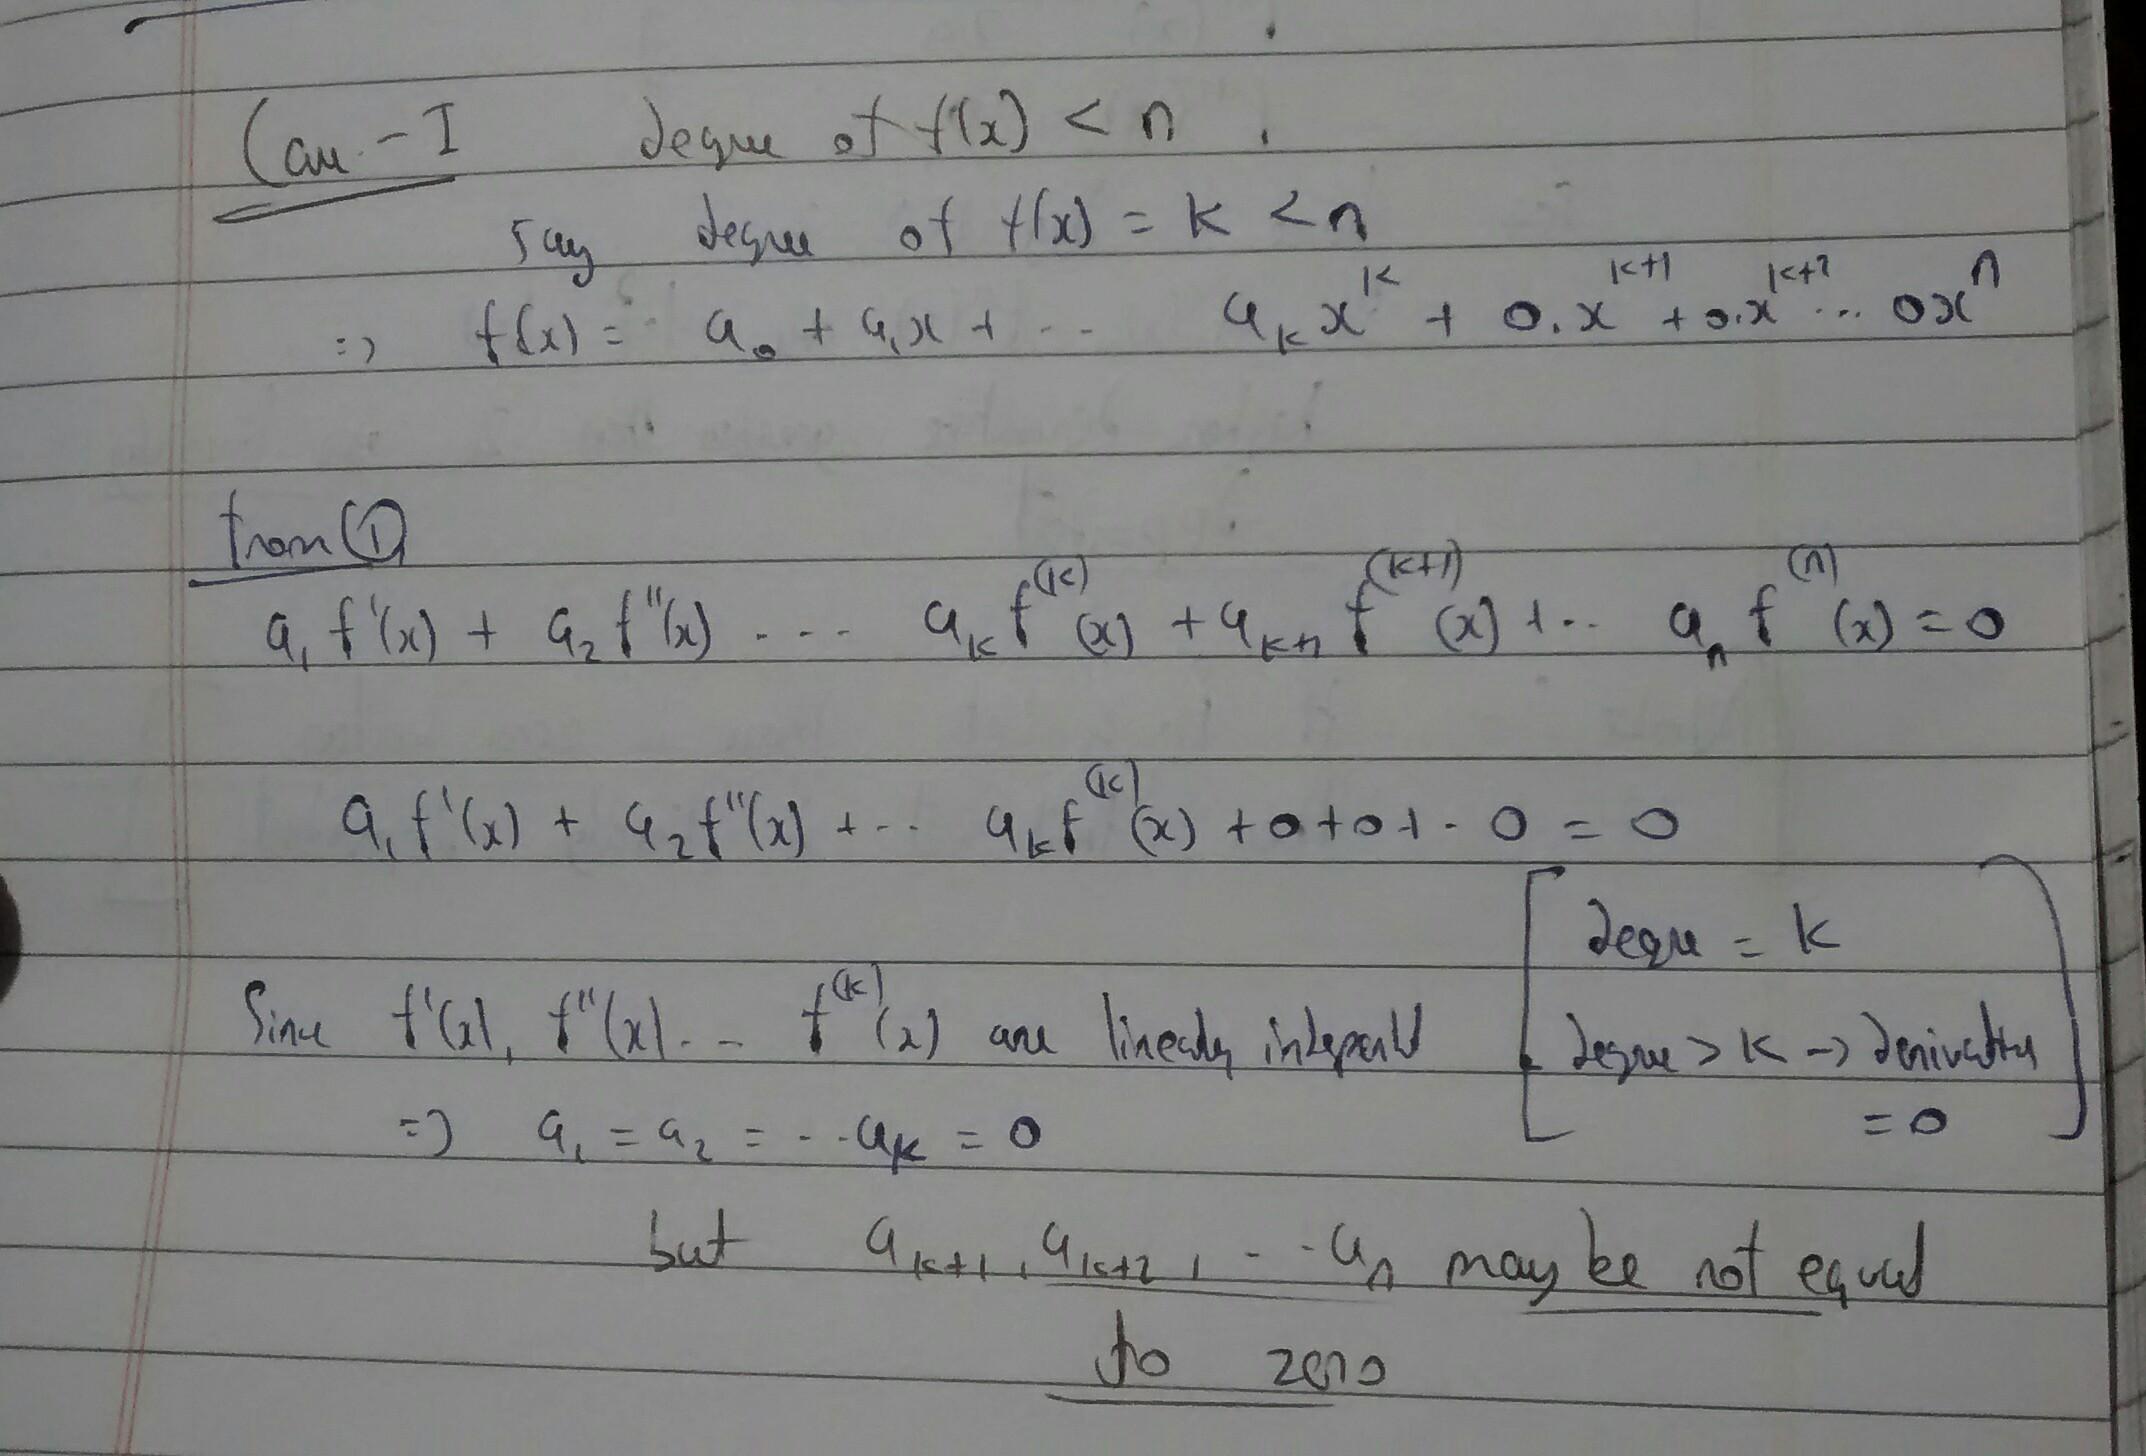 Case - I degree of f(x) < n .
say degree of f(x) = k < n
=> f(x) = a₀ + a₁x + .. aₖxᵏ + 0.xᵏ⁺¹ + 0.xᵏ⁺² ... 0xⁿ
from ①
a₁f'(x) + a₂f''(x) .... aₖf⁽ᵏ⁾(x) + aₖ₊₁f⁽ᵏ⁺¹⁾(x) + .. aₙf⁽ⁿ⁾(x) = 0
a₁f'(x) + a₂f''(x) + .. aₖf⁽ᵏ⁾(x) + 0 + 0 + . 0 = 0
[degree = k
Since f'(x), f''(x) .. f⁽ᵏ⁾(x) are linearly independent degree > k -> derivative
=> a₁ = a₂ = ... aₖ = 0 = 0]
but aₖ₊₁, aₖ₊₂, ... aₙ may be not equal
to zero